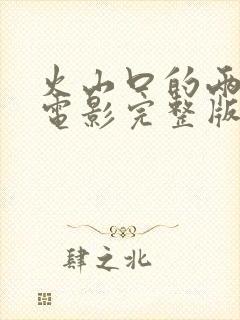 火山口的两
电影完整版
肆之北